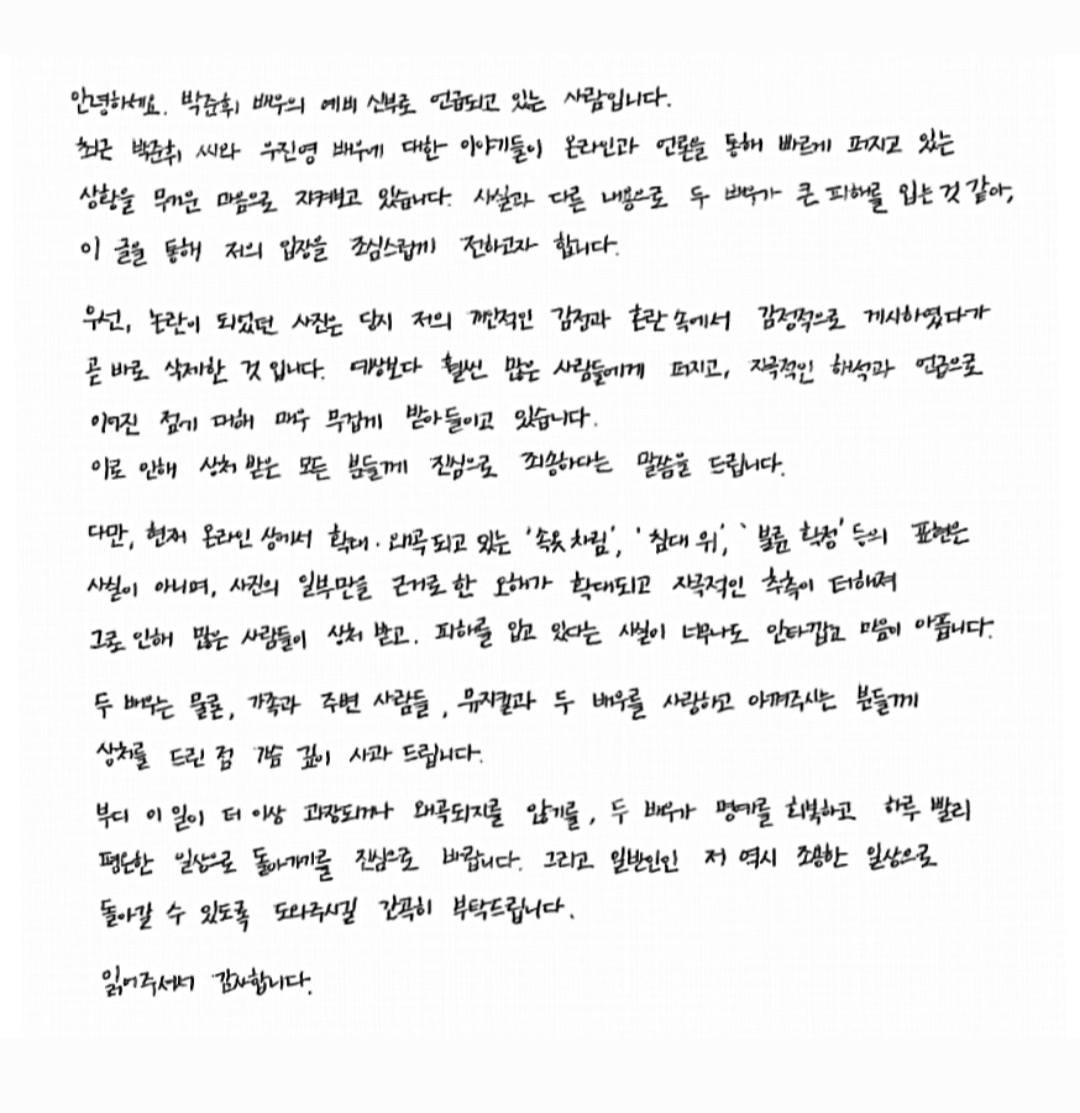 안녕하세요. 박준휘 배우의 예비 신부로 언급되고 있는 사람입니다.
최근 박준휘 씨와 우진영 배우에 대한 이야기들이 온라인과 언론을 통해 빠르게 퍼지고 있는
상황을 무거운 마음으로 지켜보고 있습니다. 사실과 다른 내용으로 두 배우가 큰 피해를 입는 것 같아,
이 글을 통해 저의 입장을 조심스럽게 전하고자 합니다.
우선, 논란이 되었던 사진은 당시 저의 개인적인 감정과 혼란 속에서 감정적으로 게시하였다가
곧 바로 삭제한 것 입니다. 예상보다 훨씬 많은 사람들에게 퍼지고, 자극적인 해석과 언급으로
이어진 점에 대해 매우 무겁게 받아들이고 있습니다.
이로 인해 상처 받은 모든 분들께 진심으로 죄송하다는 말씀을 드립니다.
다만, 현재 온라인 상에서 확대·왜곡 되고 있는 '속옷 차림', '침대 위', '불륜 확정' 등의 표현은
사실이 아니며, 사진의 일부만을 근거로 한 오해가 확대되고 자극적인 추측이 더해져
그로 인해 많은 사람들이 상처 받고. 피해를 입고 있다는 사실이 너무나도 안타깝고 마음이 아픕니다.
두 배우는 물론, 가족과 주변 사람들, 뮤지컬과 두 배우를 사랑하고 아껴주시는 분들께
상처를 드린 점 가슴 깊이 사과 드립니다.
부디 이 일이 더 이상 과장되거나 왜곡되지를 않기를, 두 배우가 명예를 회복하고 하루 빨리
평온한 일상으로 돌아가기를 진심으로 바랍니다. 그리고 일반인인 저 역시 조용한 일상으로
돌아갈 수 있도록 도와주시길 간곡히 부탁드립니다.
읽어주셔서 감사합니다.